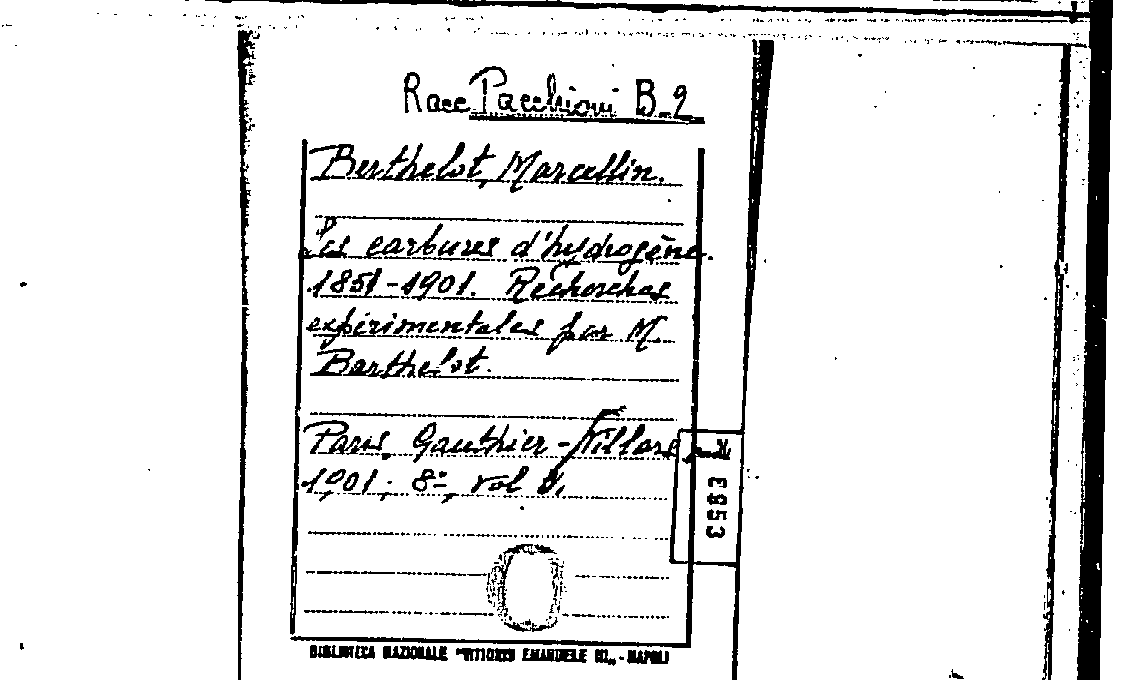 Racc Pacchioni B. 2
Berthelot, Marcellin.
Les carbures d'hydrogène.
1851-1901. Recherches
expérimentales par M.
Berthelot.
Paris, Gauthier-Villars
1901; 8º, vol
E953
BIBLIOTECA NAZIONALE "VITTORIO EMANUELE III„ - NAPOLI